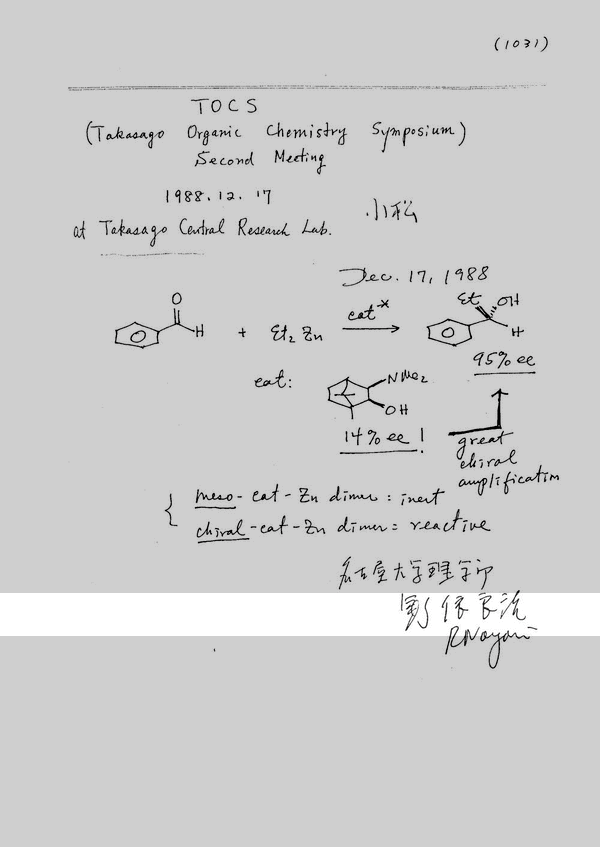 (1031)
TOCS
(Takasago Organic Chemistry Symposium)
Second Meeting
1988.12.17
小松
at Takasago Central Research Lab.
Dec. 17, 1988
O
H + Et2 Zn cat* Et OH
H
95% ee
cat: NMe2
OH
14% ee! great
chiral
amplification
meso-cat-Zn dimer: inert
chiral-cat-Zn dimer: reactive
名古屋大学理学部
野依良治
RNoyori